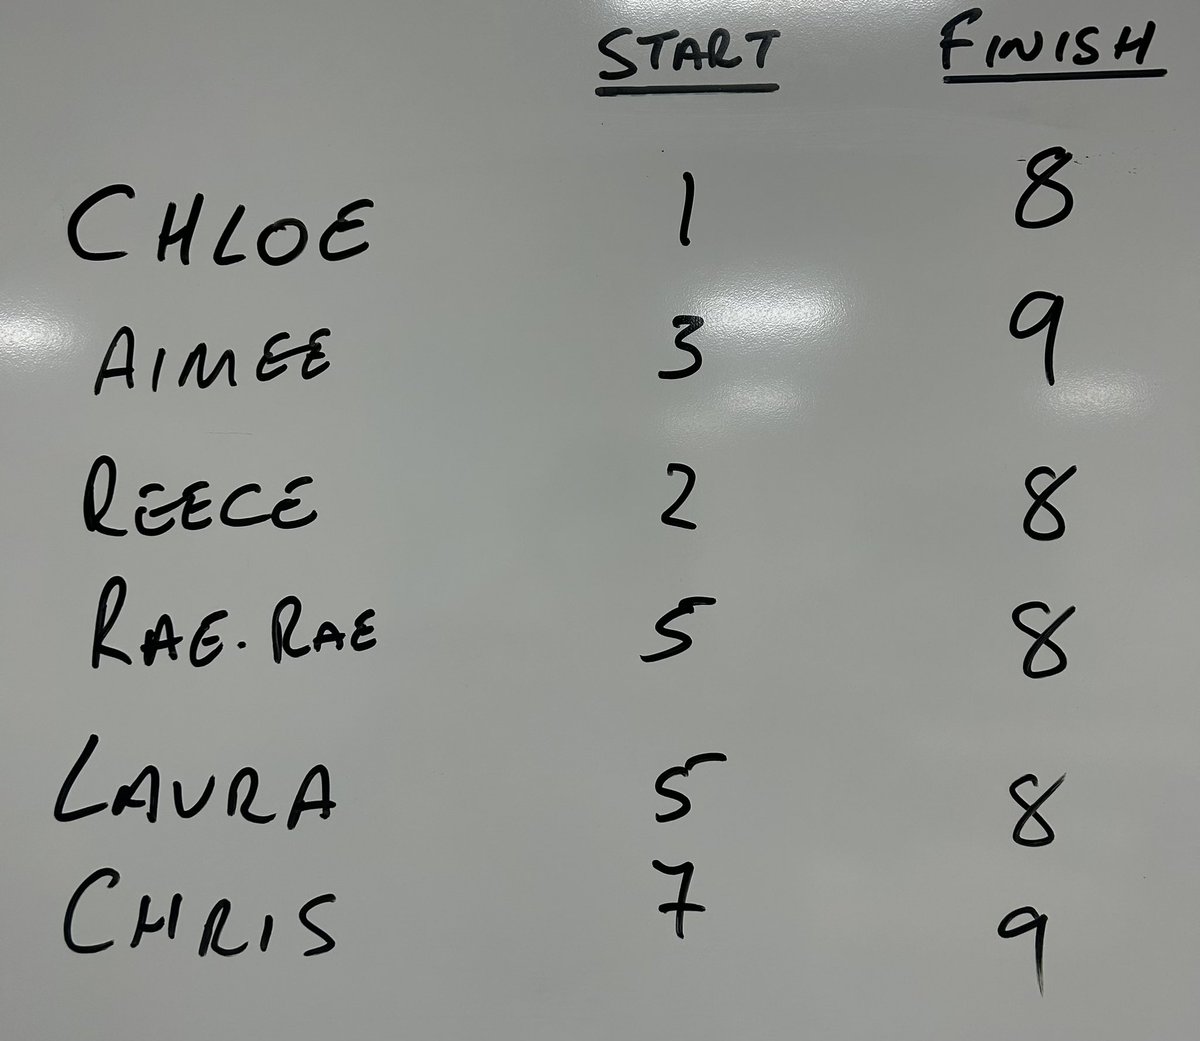 START FINISH
CHLOE 1 8
AIMEE 3 9
REECE 2 8
RAE.RAE 5 8
LAURA 5 8
CHRIS 7 9